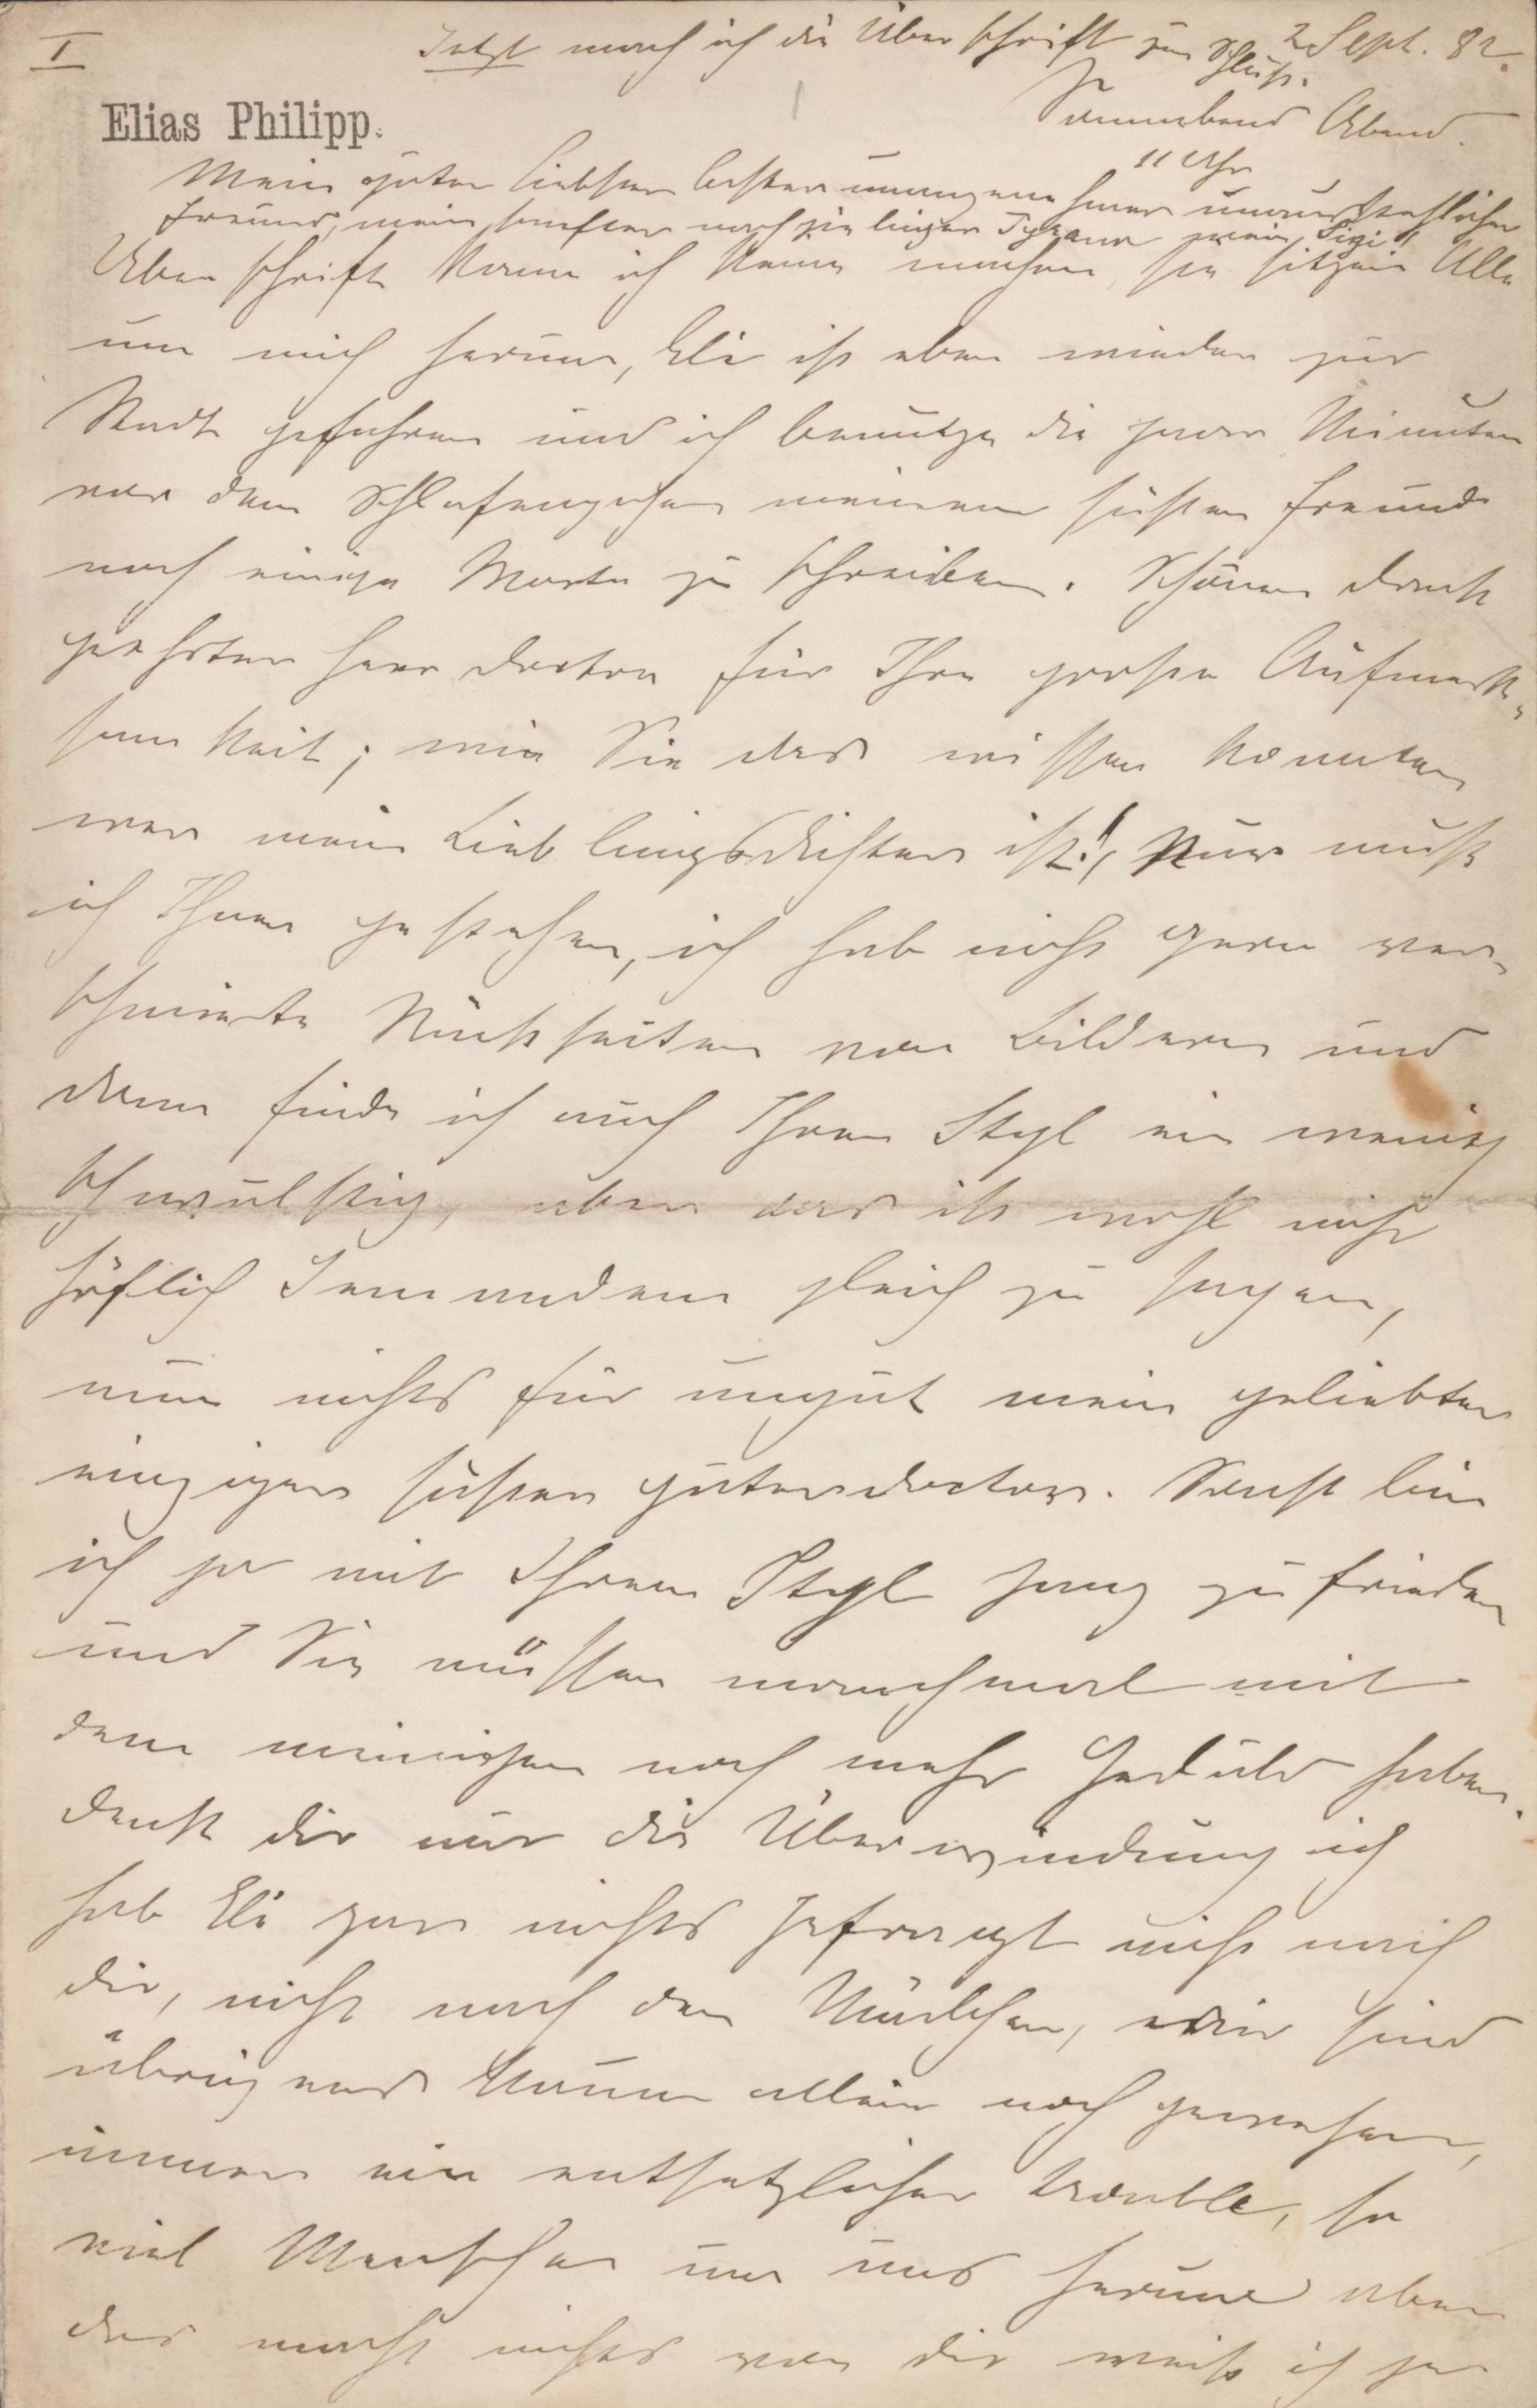 I
Jetzt mach ich die Überschrift zum Schluß.
2 Sept. 82.
Sonnabend Abend
11 Uhr
Elias Philipp.
Mein guter liebster bester unangenehmer unausstehlicher
Freund, mein sanfter nachgiebiger Tyrann mein „Sigi"
Überschrift kann ich keine machen, sie sitzen Alle
um mich herum, Eli ist eben wieder zur
Stadt gefahren und ich benutze die paar Minuten
vor dem Schlafengehen meinem süßen Freunde
noch einige Worte zu schreiben. Schönen Dank
geehrter Herr Doctor für Ihre große Aufmerk-
samkeit; wie Sie das wissen konnten
wer mein Lieblingsdichter ist! Nur muß
ich Ihnen gestehen, ich hab nicht gern ver-
schmierte Rückseiten von Bildern und
dann finde ich auch Ihren Styl ein wenig
schwülstig, aber das ist wohl nicht
höflich Jemandem gleich zu sagen,
nun nichts für ungut mein geliebter
einziger süßer guter Doctor. Sonst bin
ich ja mit Ihrem Styl ganz zufrieden
und Sie müssen manchmal mit
dem meinigen noch mehr Geduld haben.
Denk dir nur die Überwindung ich
hab Eli gar nichts gefragt nicht nach
dir, nicht nach den Mädchen, wir sind
übrigens kaum allein noch gewesen,
immer ein entsetzlicher Trouble, so
viel Menschen um uns herum aber
das macht nichts von dir weiß ich ja